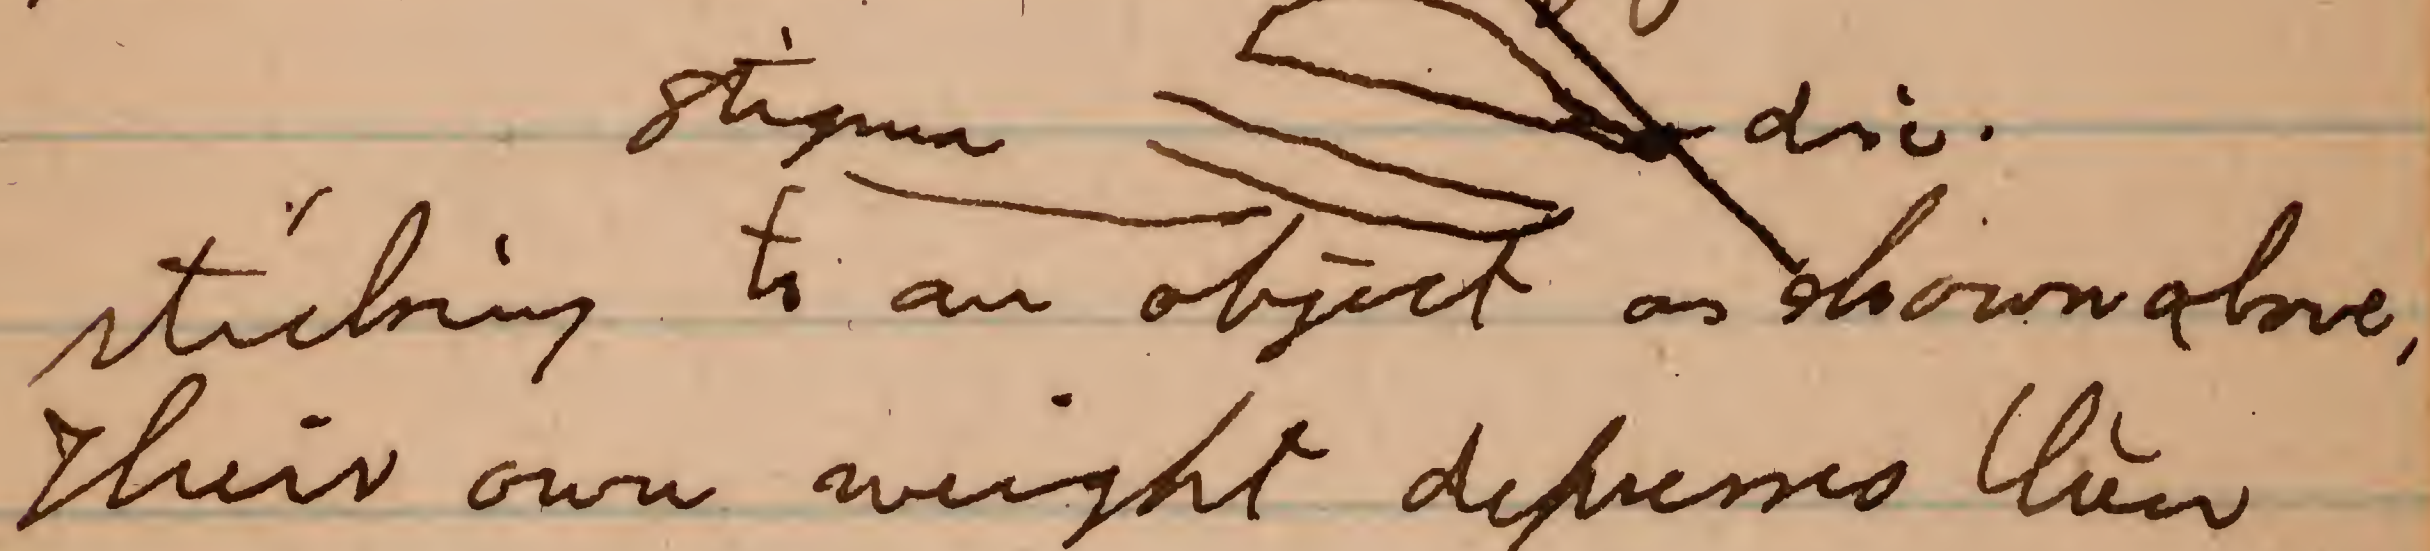 stigma disc.
sticking to an object as shown above,
their own weight depresses their